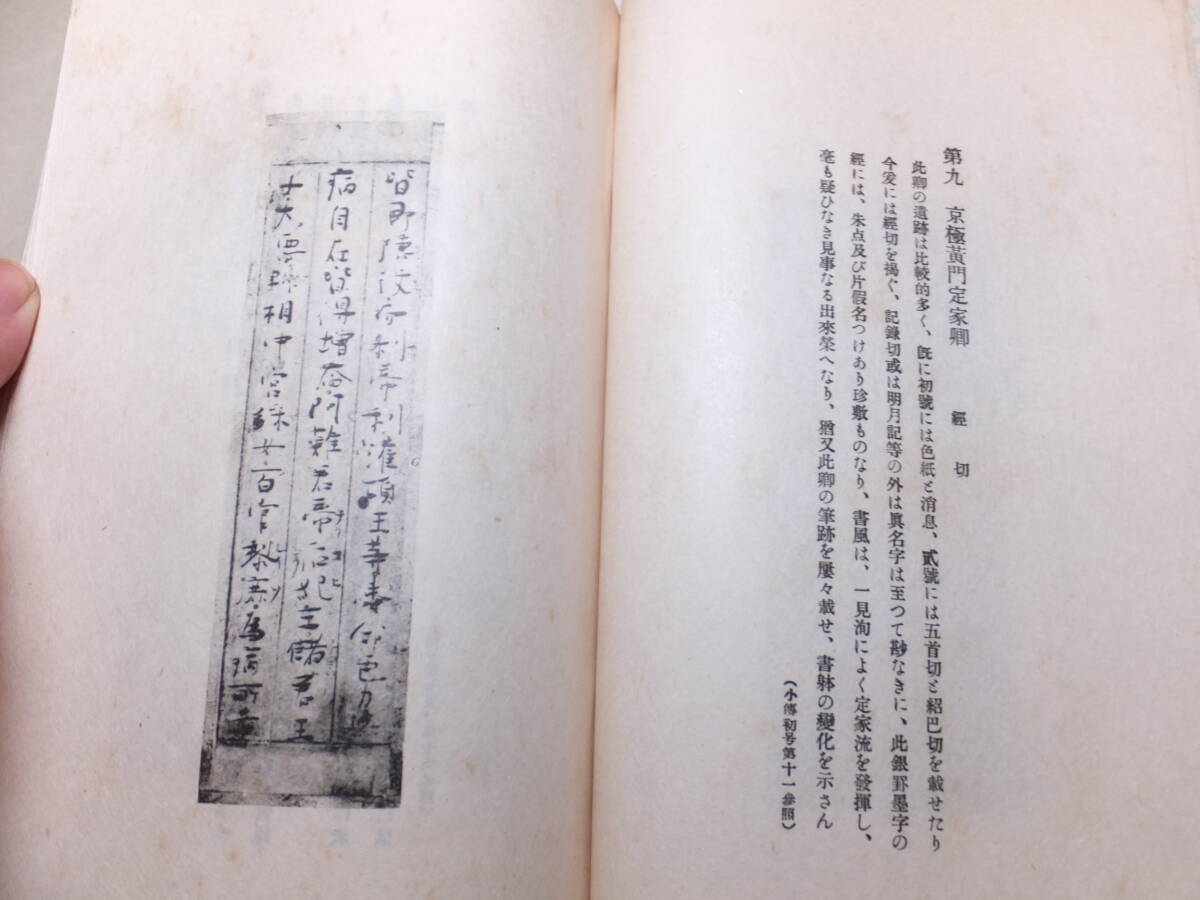 第九 京極黃門定家卿 經切
此卿の遺跡は比較的多く、旣に初號には色紙と消息、貳號には五首切と紹巴切を載せたり
今爰には經切を揭ぐ、記錄切或は明月記等の外は眞名字は至つて尠なきに、此銀罫墨字の
經には、朱点及び片假名つけあり珍敷ものなり、書風は、一見洵によく定家流を發揮し、
毫も疑ひなき見事なる出來榮へなり、猶又此卿の筆跡を屢々載せ、書躰の變化を示さん
(小傳初号第十一參照)
皆卽 利帝利灌頂王等 色力
病自在皆得增益阿難若帝后妃主儲君王
大臣 相中宮婇女百官黎庶爲病所